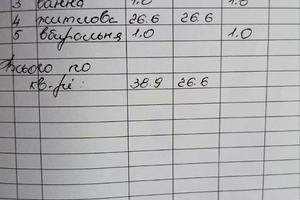 3 ванна 1.0 1.0
4 житлова 26.6 26.6
5 вбиральня 1.0 1.0
Всього по
кв-рі: 38.9 26.6